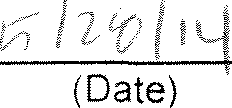 5/28/14
(Date)